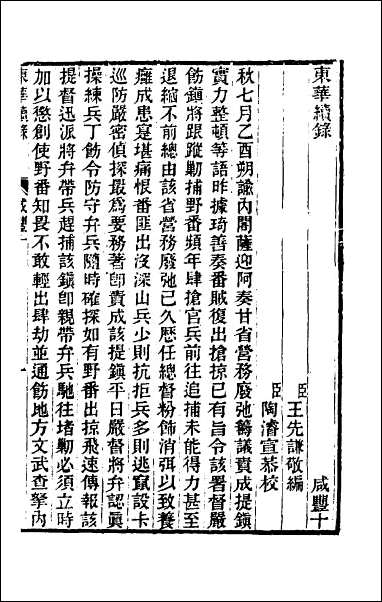 東華續錄
咸豐十
臣王先謙敬編
臣陶濬宣恭校
秋七月乙酉朔諭內閣薩迎阿奏甘省營務廢弛籌議責成提鎮
實力整頓等語昨據琦善奏番賊復出搶掠已有旨令該署督嚴
飭鎮將跟蹤勦捕野番頻年肆搶官兵前往追捕未能得力甚至
退縮不前總由該省營務廢弛已久歷任總督粉飾消弭以致養
癰成患寔堪痛恨番匪出沒深山兵少則抗拒兵多則逃竄設卡
巡防嚴密偵探最爲要務著卽責成該提鎮平日嚴督將弁認眞
操練兵丁飭令防守弁兵隨時確探如有野番出掠飛速傳報該
提督迅派將弁帶兵趕捕該鎮卽親帶弁兵馳往堵勦必須立時
加以懲創使野番知畏不敢輕出肆劫並通飭地方文武查拏內
東華續錄
咸豐十
一